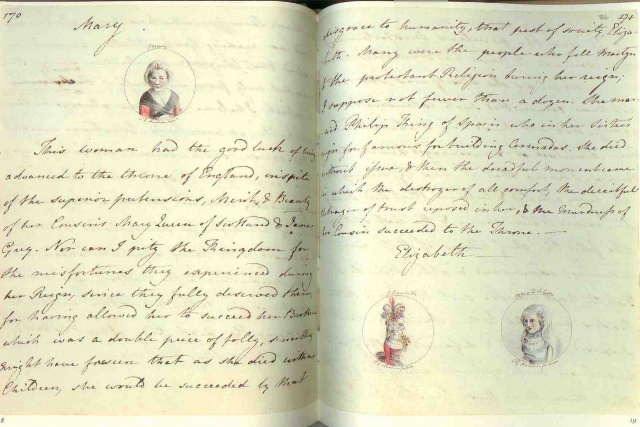 170
Mary
This woman had the good luck of being
advanced to the throne of England, inspite
of the superior pretensions, Merit, & Beauty
of her Cousins Mary Queen of Scotland & Jane
Grey. Nor can I pity the Kingdom for
the misfortunes they experienced during
her Reign, since they fully deserved them,
for having allowed her to succeed her Brother
which was a double peice of folly, since they
might have foreseen that as she died without
Children, she would be succeeded by that
8
171
disgrace to humanity, that pest of society, Eliza-
beth. Many were the people who fell Martyrs
to the protestant Religion during her reign;
I suppose not fewer than a dozen. She mar-
ried Philip King of Spain who in her Sister's
reign for famous for building Armadas. She died
without issue, & then the dreadful moment came
in which the destroyer of all comfort, the deceitful
Betrayer of trust reposed in her, & the Murderess of
her Cousin succeeded to the Throne. —
Elizabeth —
Elizabeth
Mary Q. of Scots
19